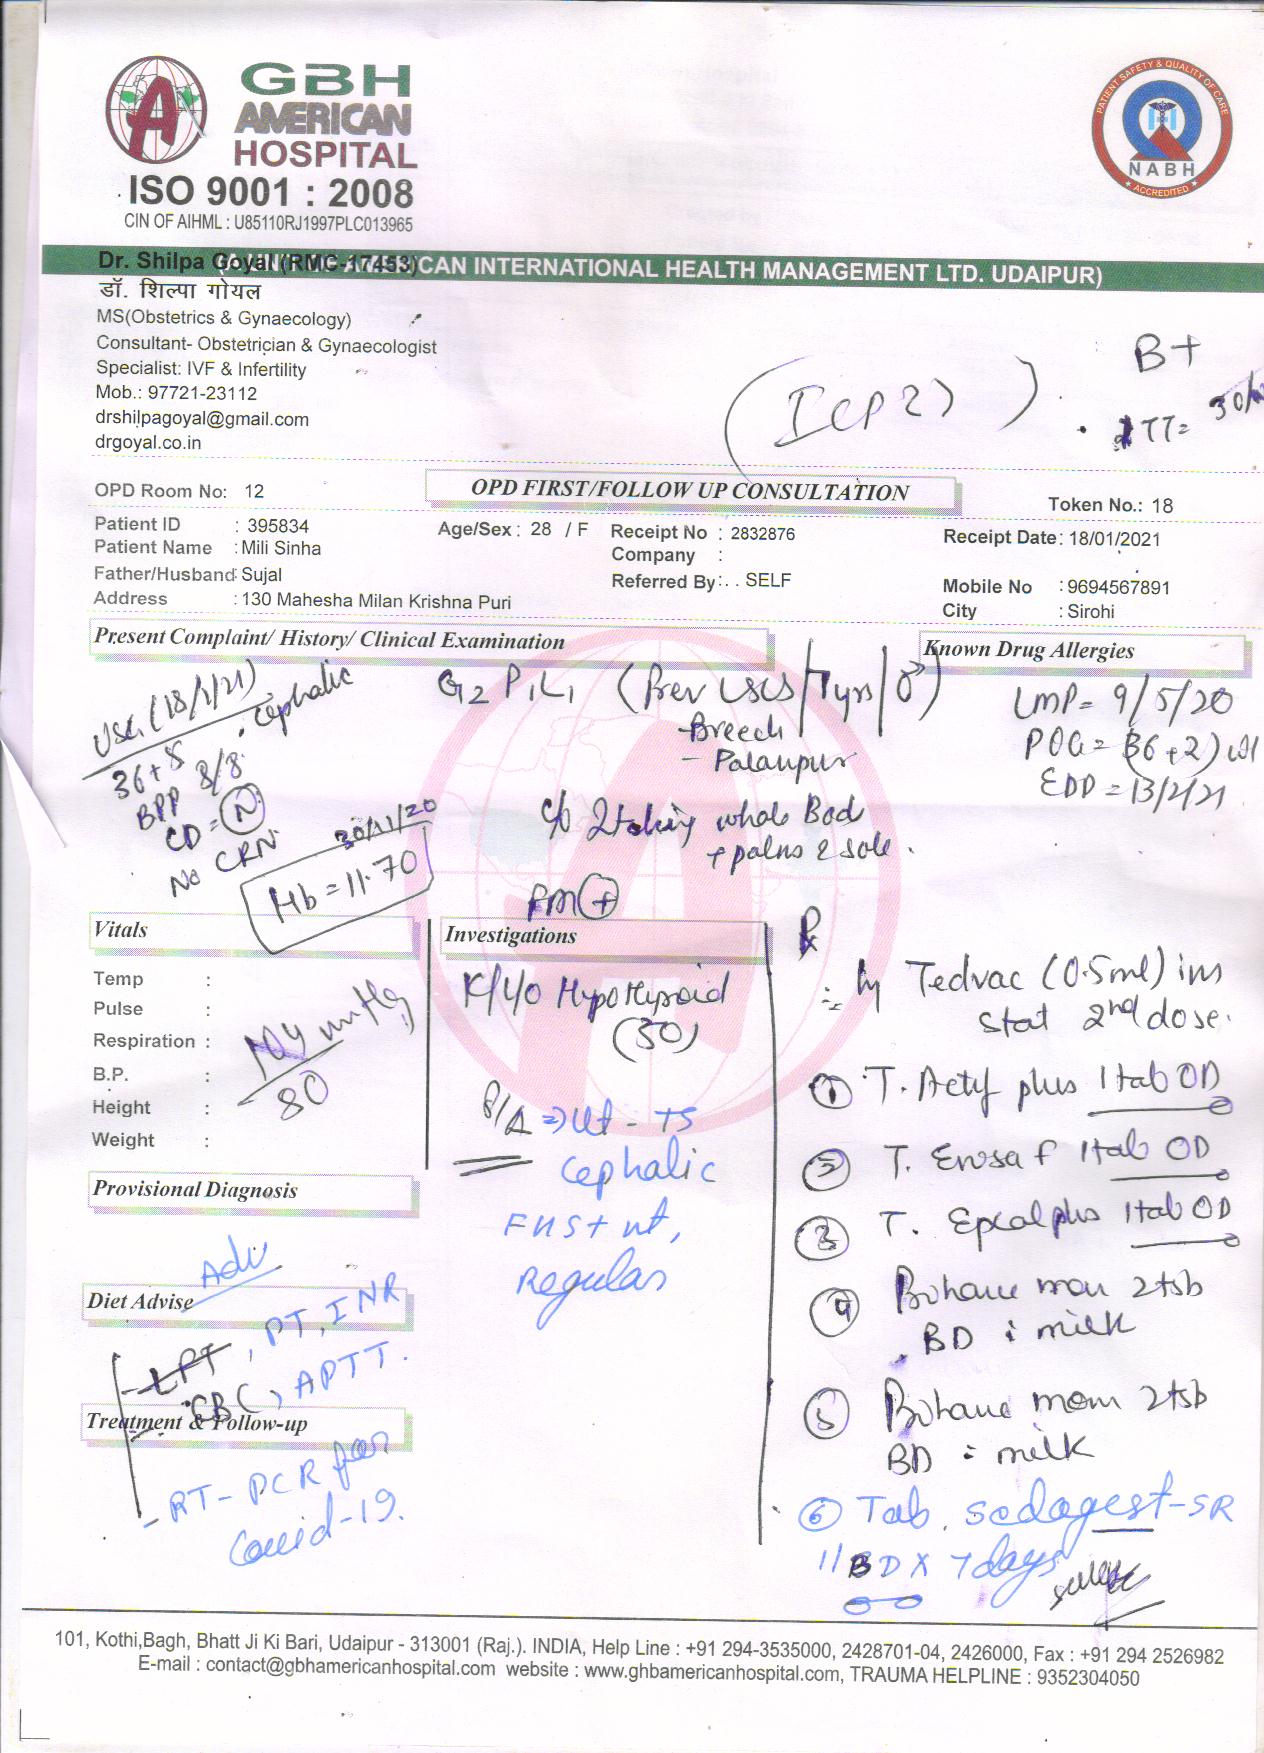 GBH
AMERICAN
HOSPITAL
ISO 9001 : 2008
CIN OF AIHML : U85110RJ1997PLC013965
PATIENT SAFETY & QUALITY OF CARE
NABH
ACCREDITED
CAN INTERNATIONAL HEALTH MANAGEMENT LTD. UDAIPUR)
Dr. Shilpa Goyal (RMC-17453)
डॉ. शिल्पा गोयल
MS(Obstetrics & Gynaecology)
Consultant- Obstetrician & Gynaecologist
Specialist: IVF & Infertility
Mob.: 97721-23112
drshilpagoyal@gmail.com
drgoyal.co.in
B+
TT=
OPD Room No: 12
OPD FIRST/FOLLOW UP CONSULTATION
Token No.: 18
Patient ID : 395834
Age/Sex : 28 / F
Receipt No : 2832876
Receipt Date: 18/01/2021
Patient Name : Mili Sinha
Company :
Father/Husband: Sujal
Referred By: . . SELF
Mobile No : 9694567891
Address : 130 Mahesha Milan Krishna Puri
City : Sirohi
Present Complaint/ History/ Clinical Examination
Known Drug Allergies
(18/1/21)
cephalic
BPP 8/8
CD = N
30/11/20
Hb = 11.70
G2 P1 L1 (Prev LSCS/7yrs/♂)
- Breech
- Palanpur
c/o Itching whole Bod
+ palms & sole.
FM +
LMP = 9/5/20
POG = (36+2) wk
EDD = 13/2/21
Vitals
Temp :
Pulse :
Respiration :
B.P. :
Height :
Weight :
80
Investigations
K/4/0 Hypothyroid
(50)
P/A => Ut - TS
Cephalic
FHS +nt,
Regular
Provisional Diagnosis
Adv
Diet Advise
- LFT, PT, INR
CBC, APTT.
Treatment & Follow-up
- RT-PCR for
Covid-19.
Rx
Tedvac (0.5ml) im
stat 2nd dose.
① T. Actif plus 1tab OD
② T. Erosa f 1tab OD
③ T. Epcal plus 1tab OD
④ 2tsb
BD c milk
⑤ mom 2tsb
BD c milk
⑥ Tab. Sedagest-SR
1/ BD x 7days
101, Kothi,Bagh, Bhatt Ji Ki Bari, Udaipur - 313001 (Raj.). INDIA, Help Line : +91 294-3535000, 2428701-04, 2426000, Fax : +91 294 2526982
E-mail : contact@gbhamericanhospital.com website : www.ghbamericanhospital.com, TRAUMA HELPLINE : 9352304050